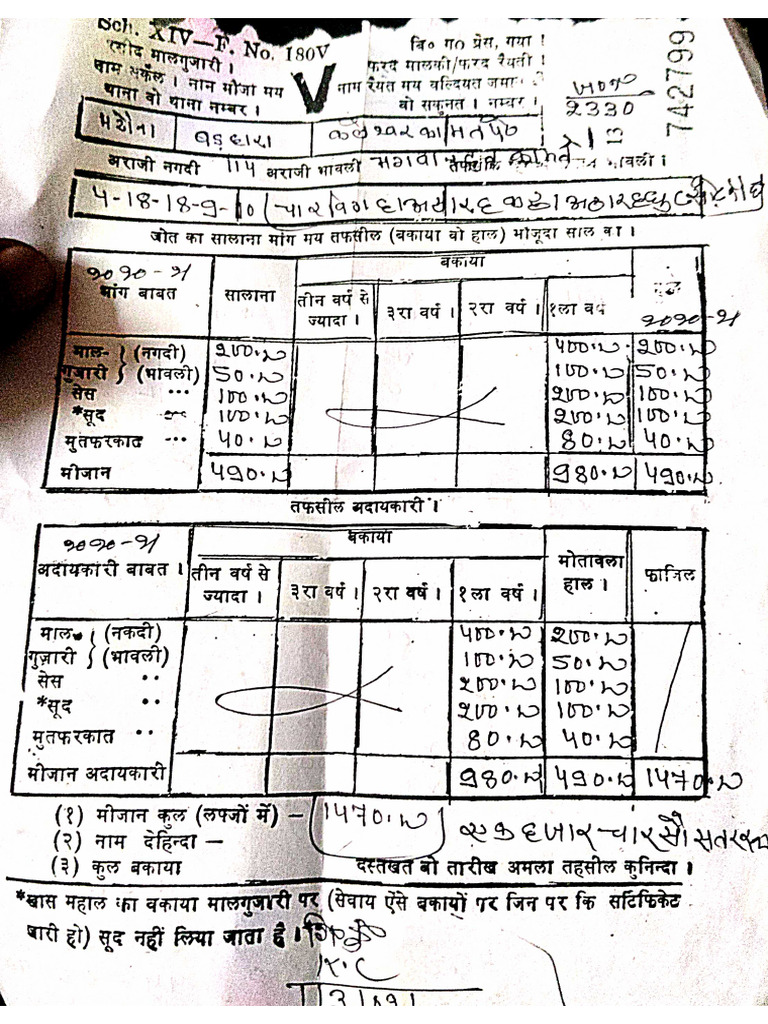 Sch. XIV—F. No. 180V
बि० ग० प्रेस, गया ।
रसीद मालगुजारी ।
फरद मालकी/फरद रैयती ।
नाम सर्कल । नान मौजा मय
नाम रैयत मय वल्दियत जमा
थाना वो थाना नम्बर ।
वो सकुनत । नम्बर ।
V
2330
742799
13
बड़हारा
अराजी नगदी 114 अराजी भावली
भावली ।
4-18-18-9-10
जोत का सालाना मांग मय तफसील (बकाया वो हाल) मौजूदा साल का ।
२०२०-२१ बकाया
मांग बाबत सालाना तीन वर्ष से ज्यादा । ३रा वर्ष । २रा वर्ष । १ला वर्ष २०२०-२१
माल- (नगदी) 200.00 400.00 200.00
गुजारी (भावली) 50.00 100.00 50.00
सेस ... 100.00 200.00 100.00
*सूद 100.00 200.00 100.00
मुतफरकात ... 40.00 80.00 40.00
मीजान 490.00 980.00 490.00
तफसील अदायकारी ।
२०२०-२१ बकाया
अदायकारी बाबत । तीन वर्ष से ज्यादा । ३रा वर्ष । २रा वर्ष । १ला वर्ष । मोतावला हाल । फाजिल
माल- (नकदी) 400.00 200.00
गुजारी (भावली) 100.00 50.00
सेस .. 200.00 100.00
*सूद .. 200.00 100.00
मुतफरकात .. 80.00 40.00
मीजान अदायकारी 980.00 490.00 1470.00
(१) मीजान कुल (लफ्जों में) — 1470.00 एक हजार चार सौ सतर
(२) नाम देहिन्दा —
(३) कुल बकाया दस्तखत वो तारीख अमला तहसील कुनिन्दा ।
*खास महाल का बकाया मालगुजारी पर (सेवाय ऐसे बकायों पर जिन पर कि सर्टिफिकेट
जारी हो) सूद नहीं लिया जाता है ।